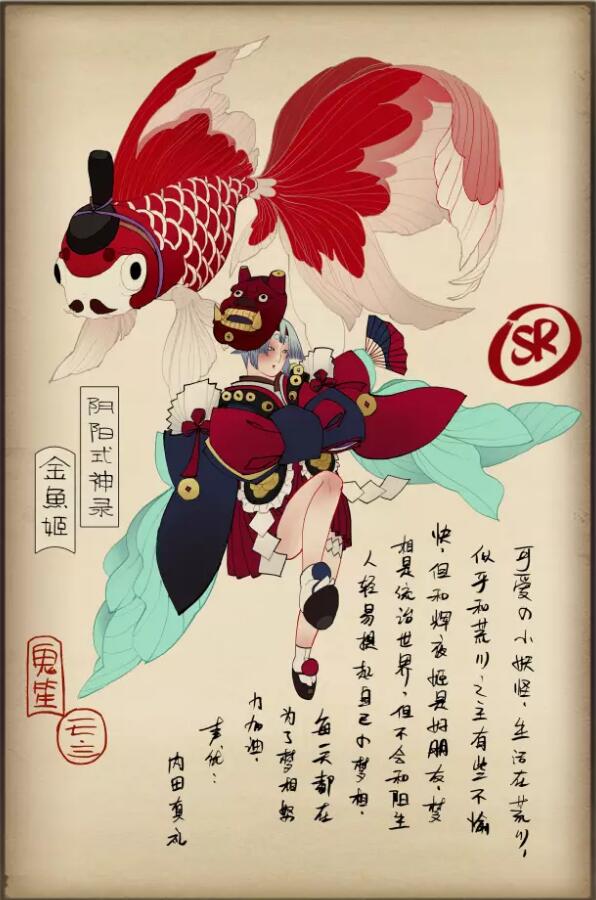 SR
阴阳式神录
金魚姬
可爱の小妖怪，生活在荒川，
似乎和荒川之主有些不愉
快，但和辉夜姬是好朋友，梦
想是统治世界，但不会和陌生
人轻易提起自己の梦想，
每一天都在
为了梦想努
力加油。
声优：
内田真礼